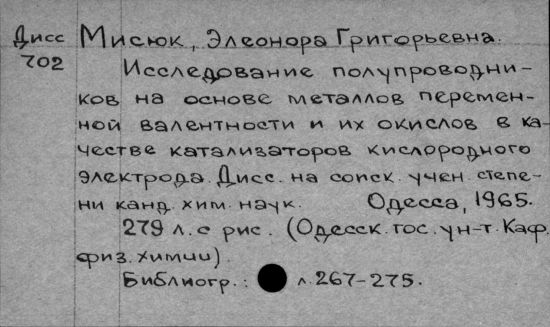 Дисс Мисюк, Элеонора Григорьевна.
702
Исследование полупроводни-
ков на основе металлов перемен-
ной валентности и их окислов в ка-
честве катализаторов кислородного
электрода. Дисс. на соиск. учен. степе-
ни канд. хим. наук. Одесса, 1965.
279 л. с рис. (Одесск. гос. ун-т. Каф.
физ. химии).
Библиогр.: л. 267-275.